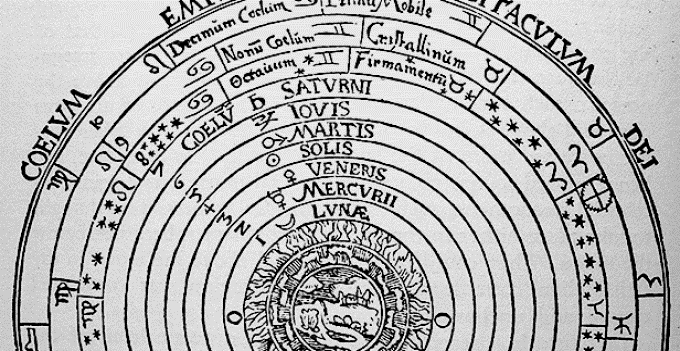 COELVM EMP ITACVLVM DEI
Decimum Coelum Primũ Mobile
Nonũ Coelum Cristallinũm
Octauum Firmamentũ
COELV SATVRNI
IOVIS
MARTIS
SOLIS
VENERIS
MERCVRII
LVNÆ